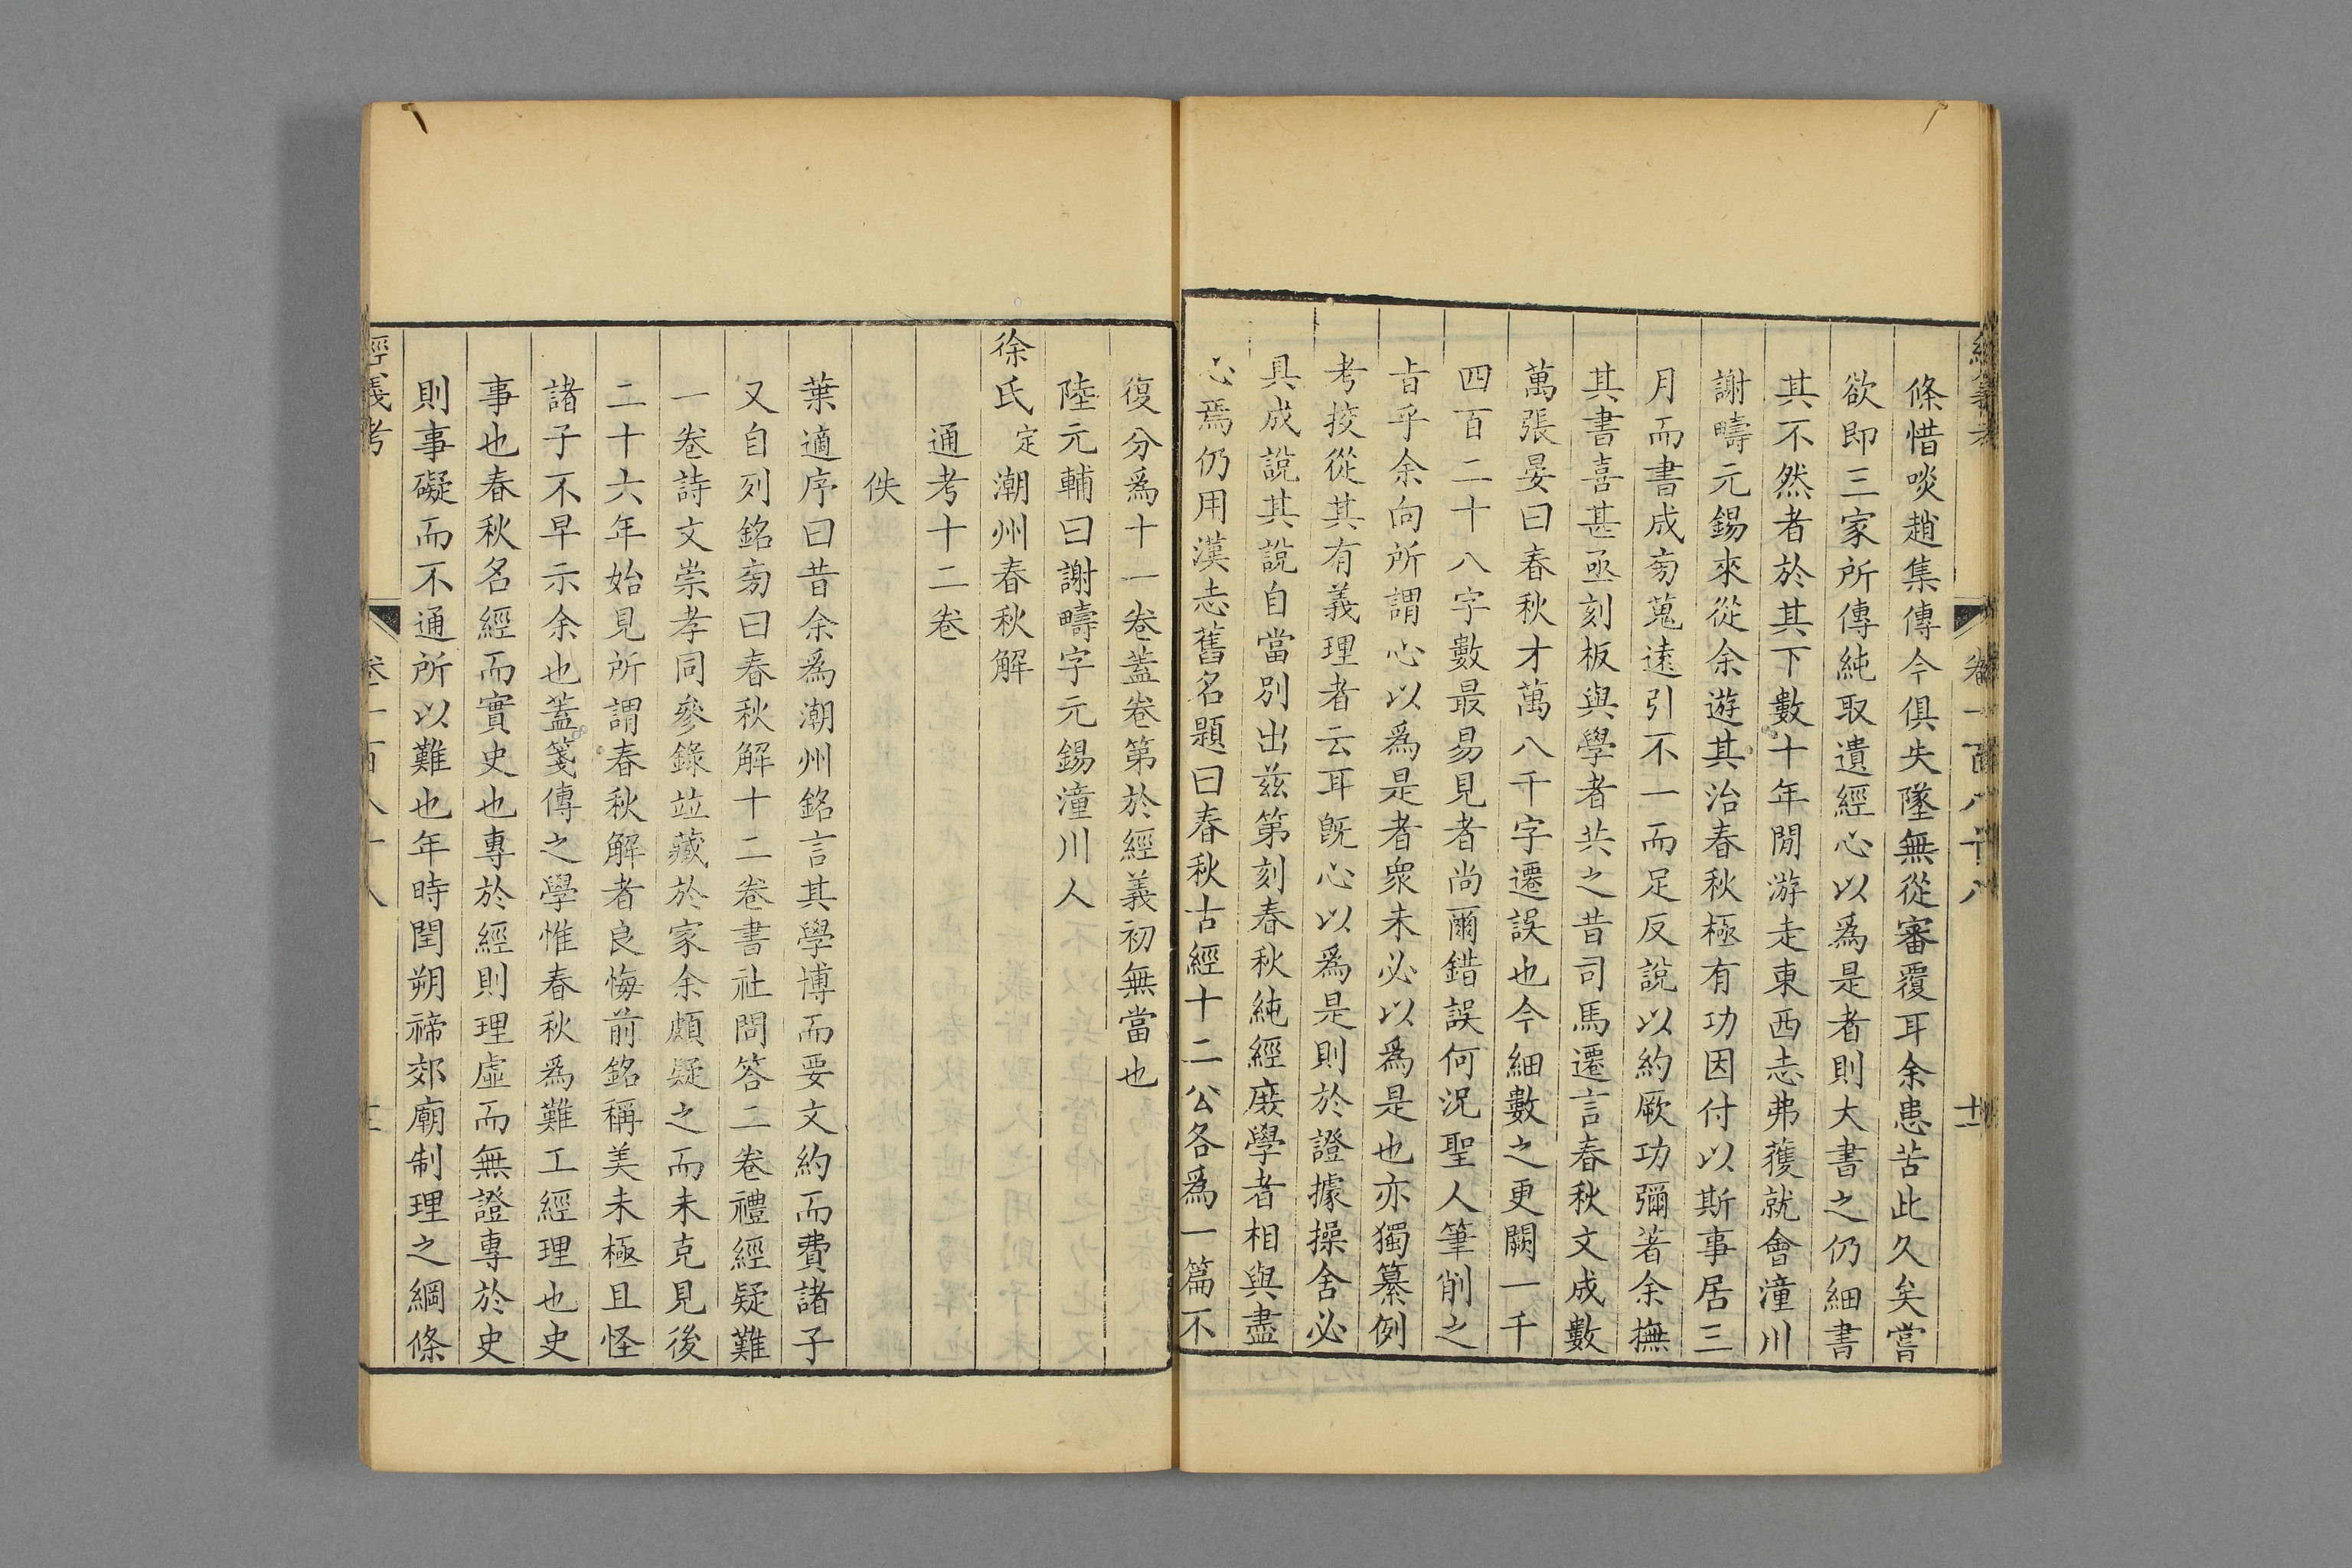 經義考 卷一百八十八 十二
條惜啖趙集傳今俱失墜無從審覆耳余患苦此久矣嘗
欲即三家所傳純取遺經心以爲是者則大書之仍細書
其不然者於其下數十年閒游走東西志弗獲就會潼川
謝疇元錫來從余遊其治春秋極有功因付以斯事居三
月而書成㫄蒐遠引不一而足反說以約厥功彌著余撫
其書喜甚亟刻板與學者共之昔司馬遷言春秋文成數
萬張晏曰春秋才萬八千字遷誤也今細數之更闕一千
四百二十八字數最易見者尚爾錯誤何況聖人筆削之
旨乎余向所謂心以爲是者衆未必以爲是也亦獨纂例
考挍從其有義理者云耳旣心以爲是則於證據操舍必
具成說其說自當別出兹第刻春秋純經庶學者相與盡
心焉仍用漢志舊名題曰春秋古經十二公各爲一篇不
復分爲十一卷蓋卷第於經義初無當也
陸元輔曰謝疇字元錫潼川人
徐氏定潮州春秋解
通考十二卷
佚
葉適序曰昔余爲潮州銘言其學博而要文約而費諸子
又自列銘㫄曰春秋解十二卷書社問答二卷禮經疑難
一卷詩文崇孝同參錄竝藏於家余頗疑之而未克見後
二十六年始見所謂春秋解者良悔前銘稱美未極且怪
諸子不早示余也蓋箋傳之學惟春秋爲難工經理也史
事也春秋名經而實史也專於經則理虛而無證專於史
則事礙而不通所以難也年時閏朔禘郊廟制理之綱條
經義考 卷一百八十八